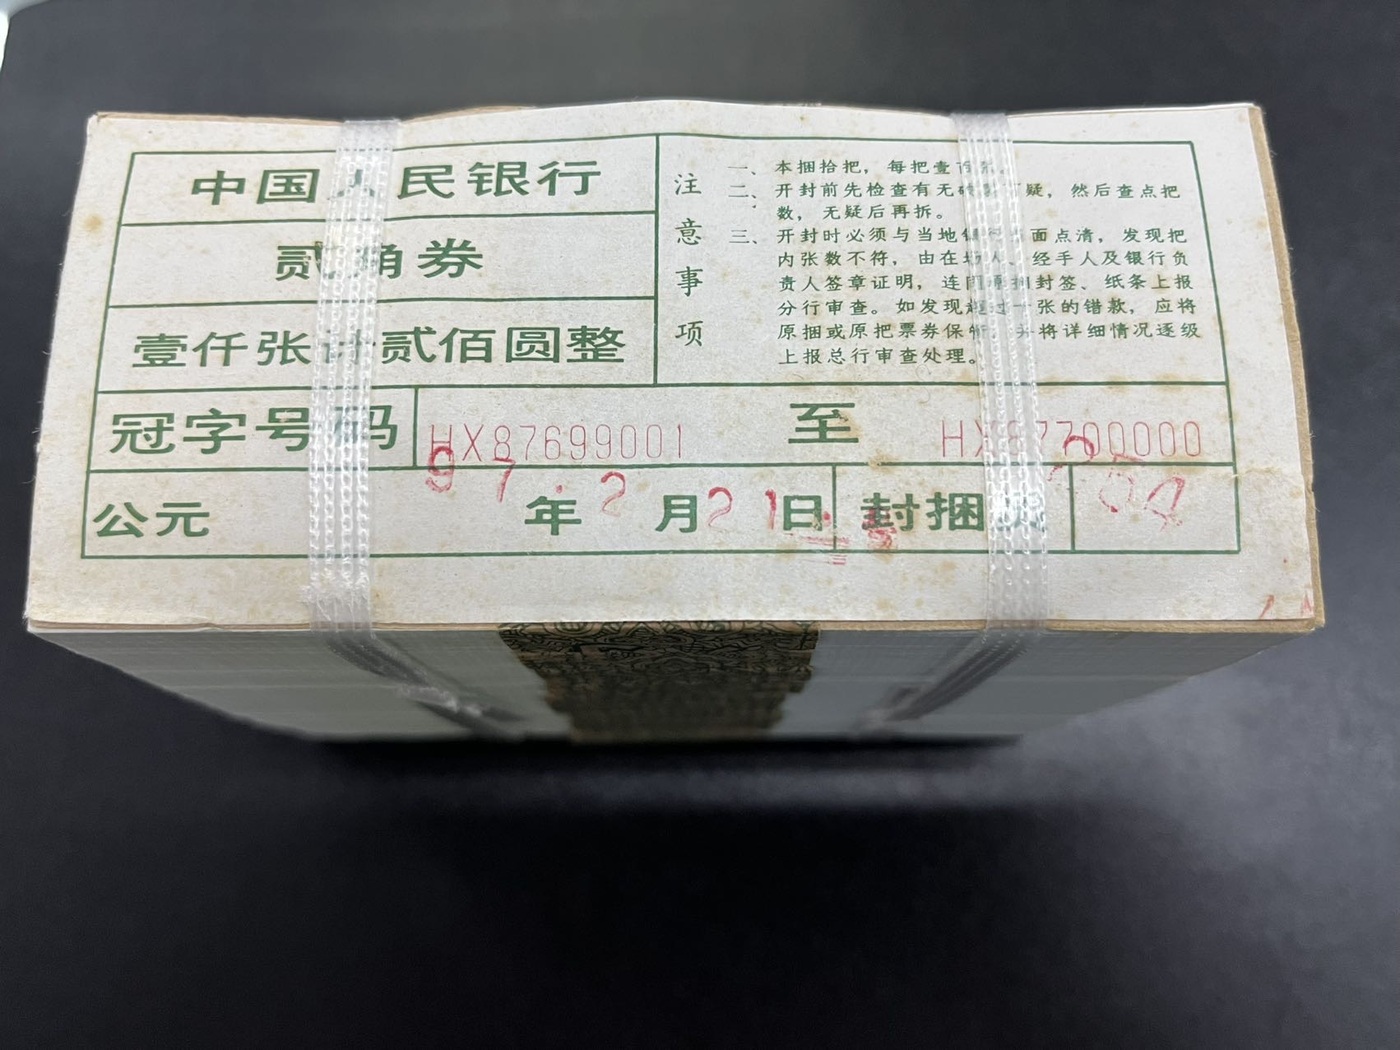 中国人民银行
贰角券
壹仟张计贰佰圆整
注意事项
一、本捆拾把，每把壹百张。
二、开封前先检查有无破 可疑，然后查点把
数，无疑后再拆。
三、开封时必须与当地 面点清，发现把
内张数不符，由在场人、经手人及银行负
责人签章证明，连同原捆封签、纸条上报
分行审查。如发现超过十张的错款，应将
原捆或原把票券保管，并将详细情况逐级
上报总行审查处理。
冠字号码 HX87699001 至 HX87700000
公元 97年2月21日 封捆员